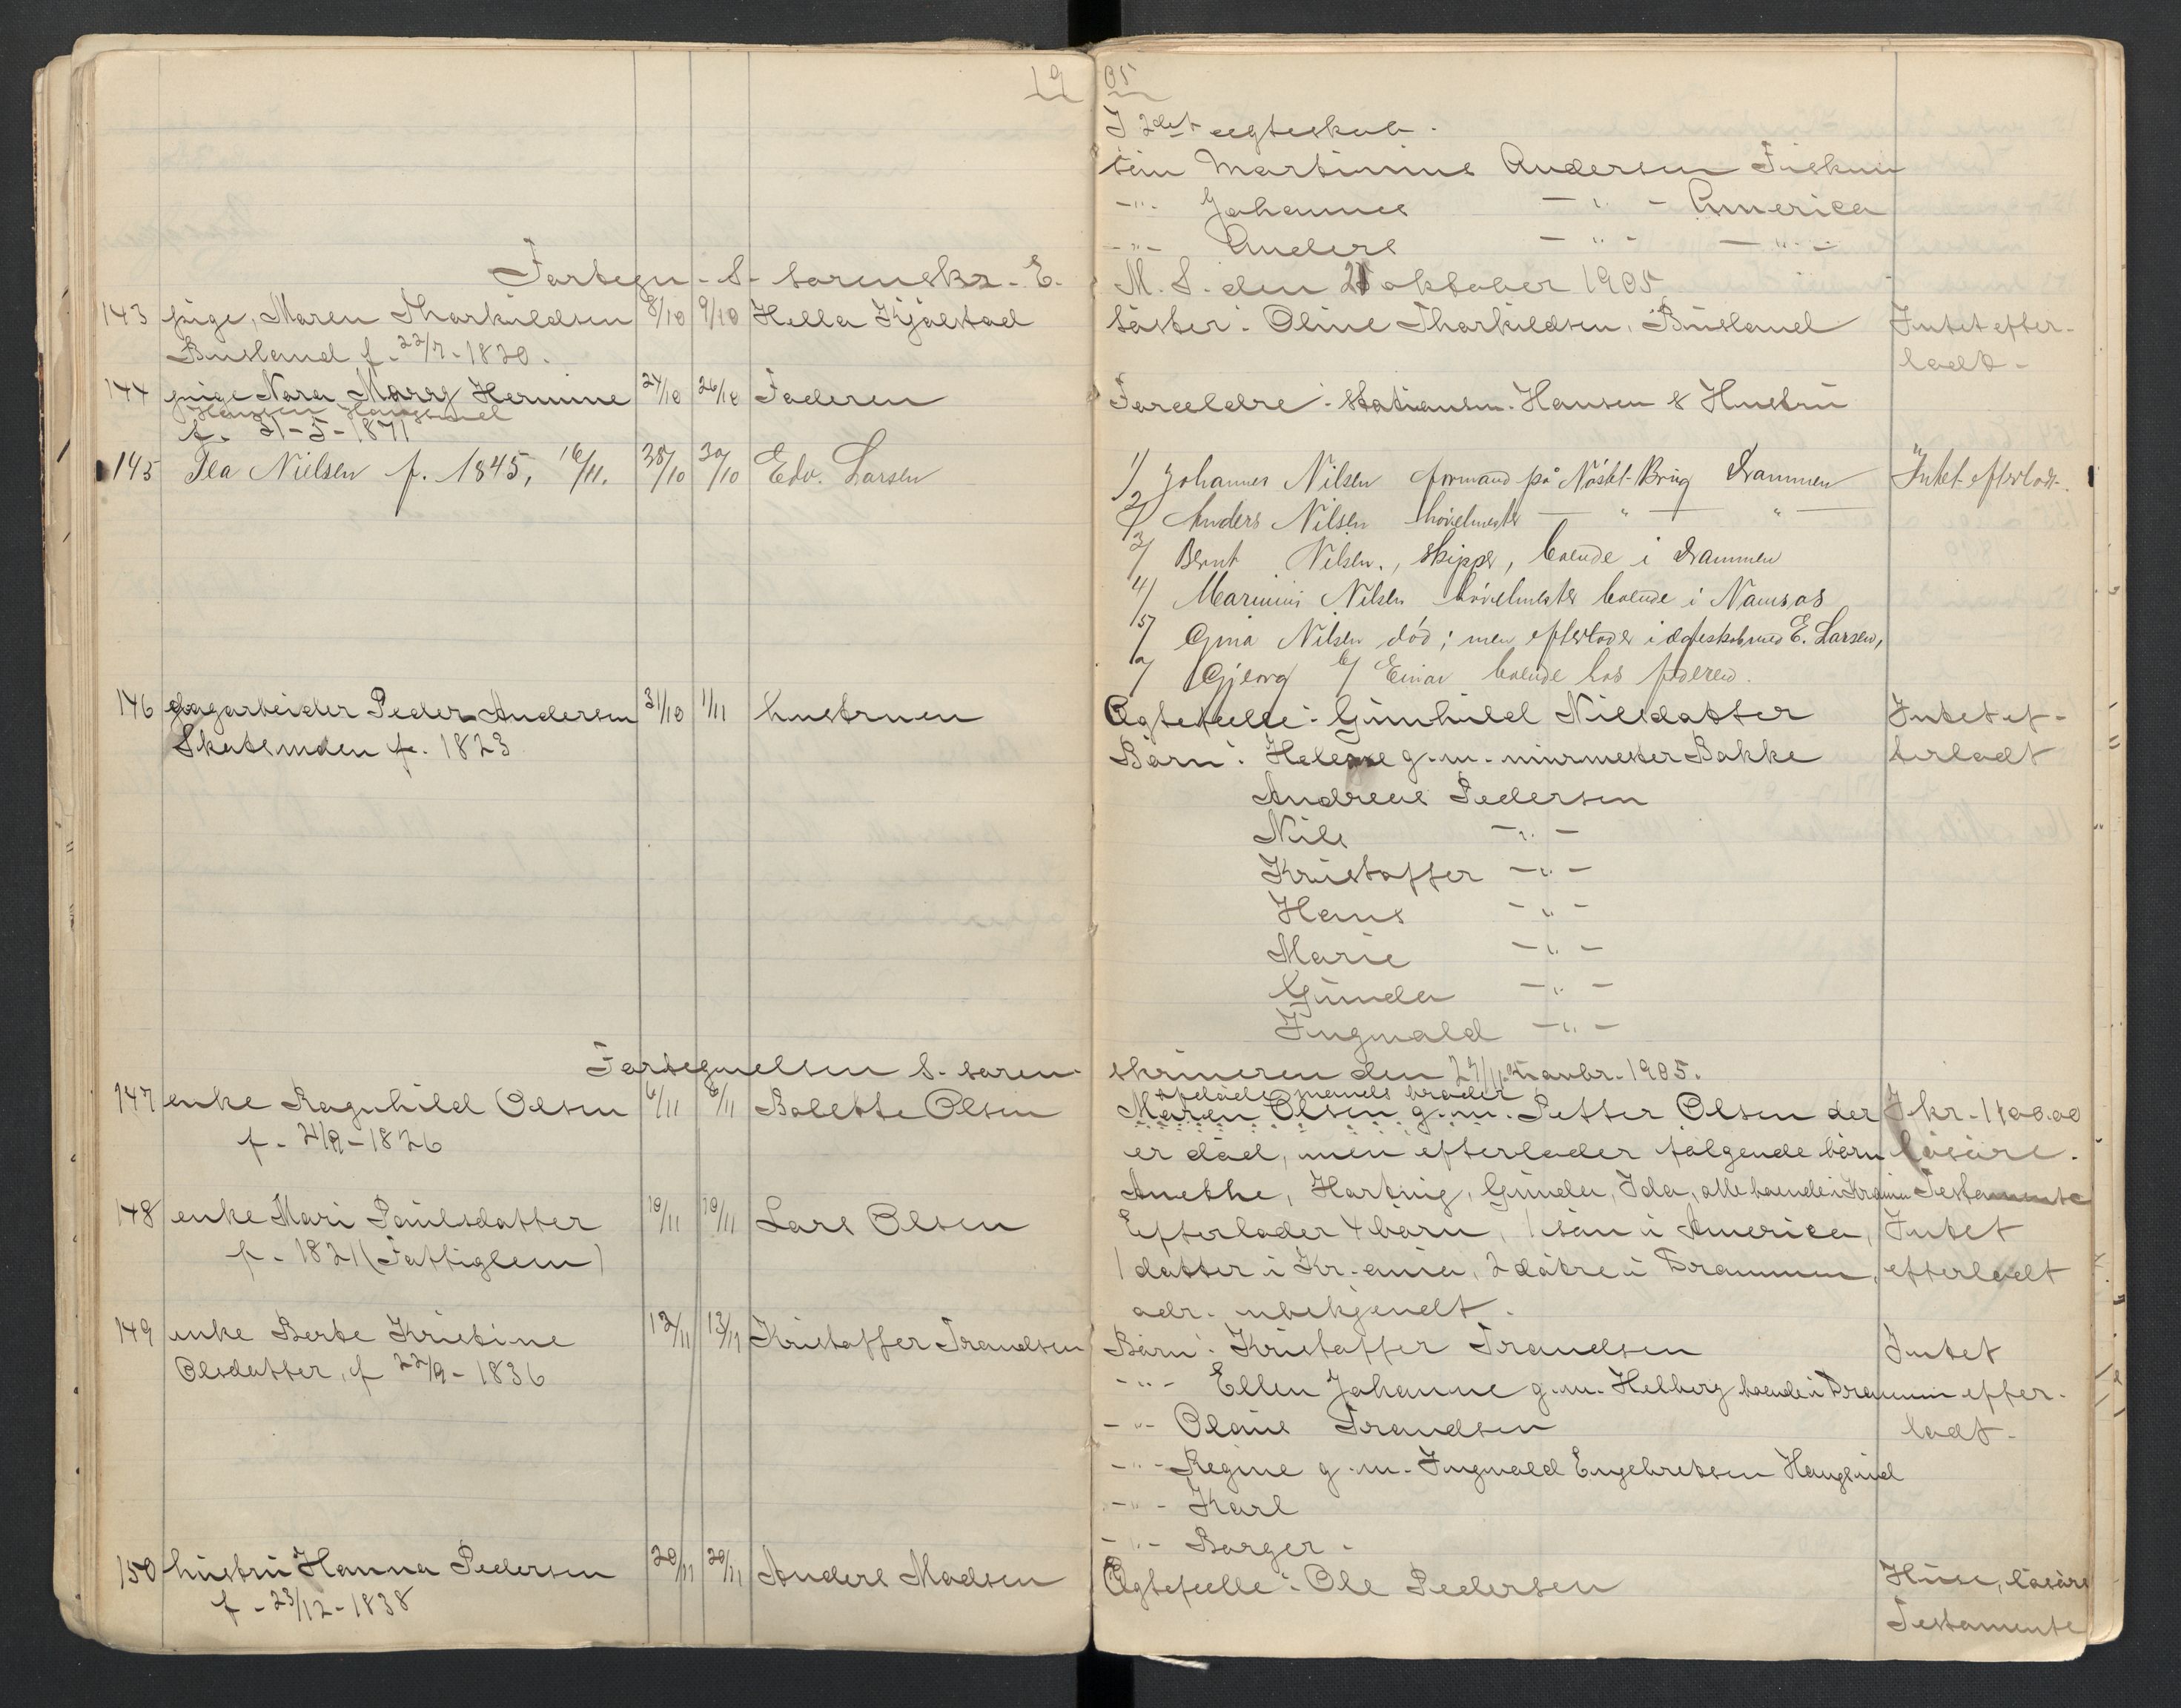 19 05
I 2det ægteskab.
søn Martinius Andersen Fiskum
-"- Johannes -"- America
-"- Anders -"- -"-
Fortegn. S. sorenskr. E. M. S. den 21 oktober 1905
143 pige, Maren Tharkildsen 8/10 9/10 Hella Kjølstad Søster: Oline Tharkildsen, Busland Intet efter-
Busland f. 22/7-1820. ladt.
144 pige Nora Marry Hermine 24/10 26/10 Faderen Forældre: Stationsm. Hansen & Hustru
Hansen Haugsund
f. 21-5-1871
145 Tea Nielsen f. 1845, 16/11. 28/10 30/10 Edv. Larsen 1/ Johannes Nilsen formand på Nøsted-Brug Drammen Intet efterladt.
2/ Anders Nilsen høvelmester — " — " —
3/ Bernt Nilsen, skipper, boende i Drammen
4/ Marinius Nilsen høvelmester boende i Namsos
5/ Gina Nilsen død; men efterlader i ægteskab med E. Larsen,
a/ Gjeorg b/ Einar boende hos faderen.
146 dagarbeider Peder Andersen 31/10 1/11 hustruen Ægtefælle: Gunhild Nilsdatter Intet ef-
Skotsmoen f. 1823 Børn: Helene g.m. murmester Bakke terladt
Andreas Pedersen
Nils -"-
Kristoffer -"-
Hans -"-
Marie -"-
Gunda -"-
Ingvald -"-
Fortegnelsen S. soren- skriveren den 27/11 1905.
afdøde mands broder
147 enke Ragnhild Olsen 6/11 6/11 Bolette Olsen Maren Olsen g.m. Petter Olsen der I kr. 1400.00
f. 21/9-1826 er død, men efterlader følgende børn løsøre.
Anethe, Hartvig, Gunda, Ida, alle boende i Krania Testamente
148 enke Mari Paulsdatter 10/11 10/11 Lars Olsen Efterlader 4 børn, 1 søn i America, Intet
f. 1821 (Fattiglem) 1 datter i Kr-ania, 2 døtre i Drammen, efterladt
adr. ubekjendt.
149 enke Berte Kristine 12/11 13/11 Kristoffer Trondsen Børn: Kristoffer Trondsen Intet
Olsdatter, f 22/9-1836 -"- Ellen Johanne g.m. Helberg boende i Drammen efter-
-"- Olaus Trondsen ladt.
-"- Regine g.m. Ingvald Engebretsen Haugsund
-"- Karl
-"- Borger.
150 hustru Hanna Pedersen 20/11 20/11 Anders Madsen Ægtefælle: Ole Pedersen Huse, løsøre
f. 23/12-1838 Testamente